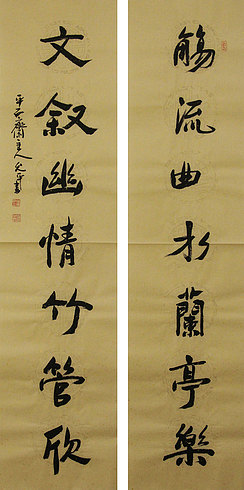 觴流曲水蘭亭樂
文叙幽情竹管欣